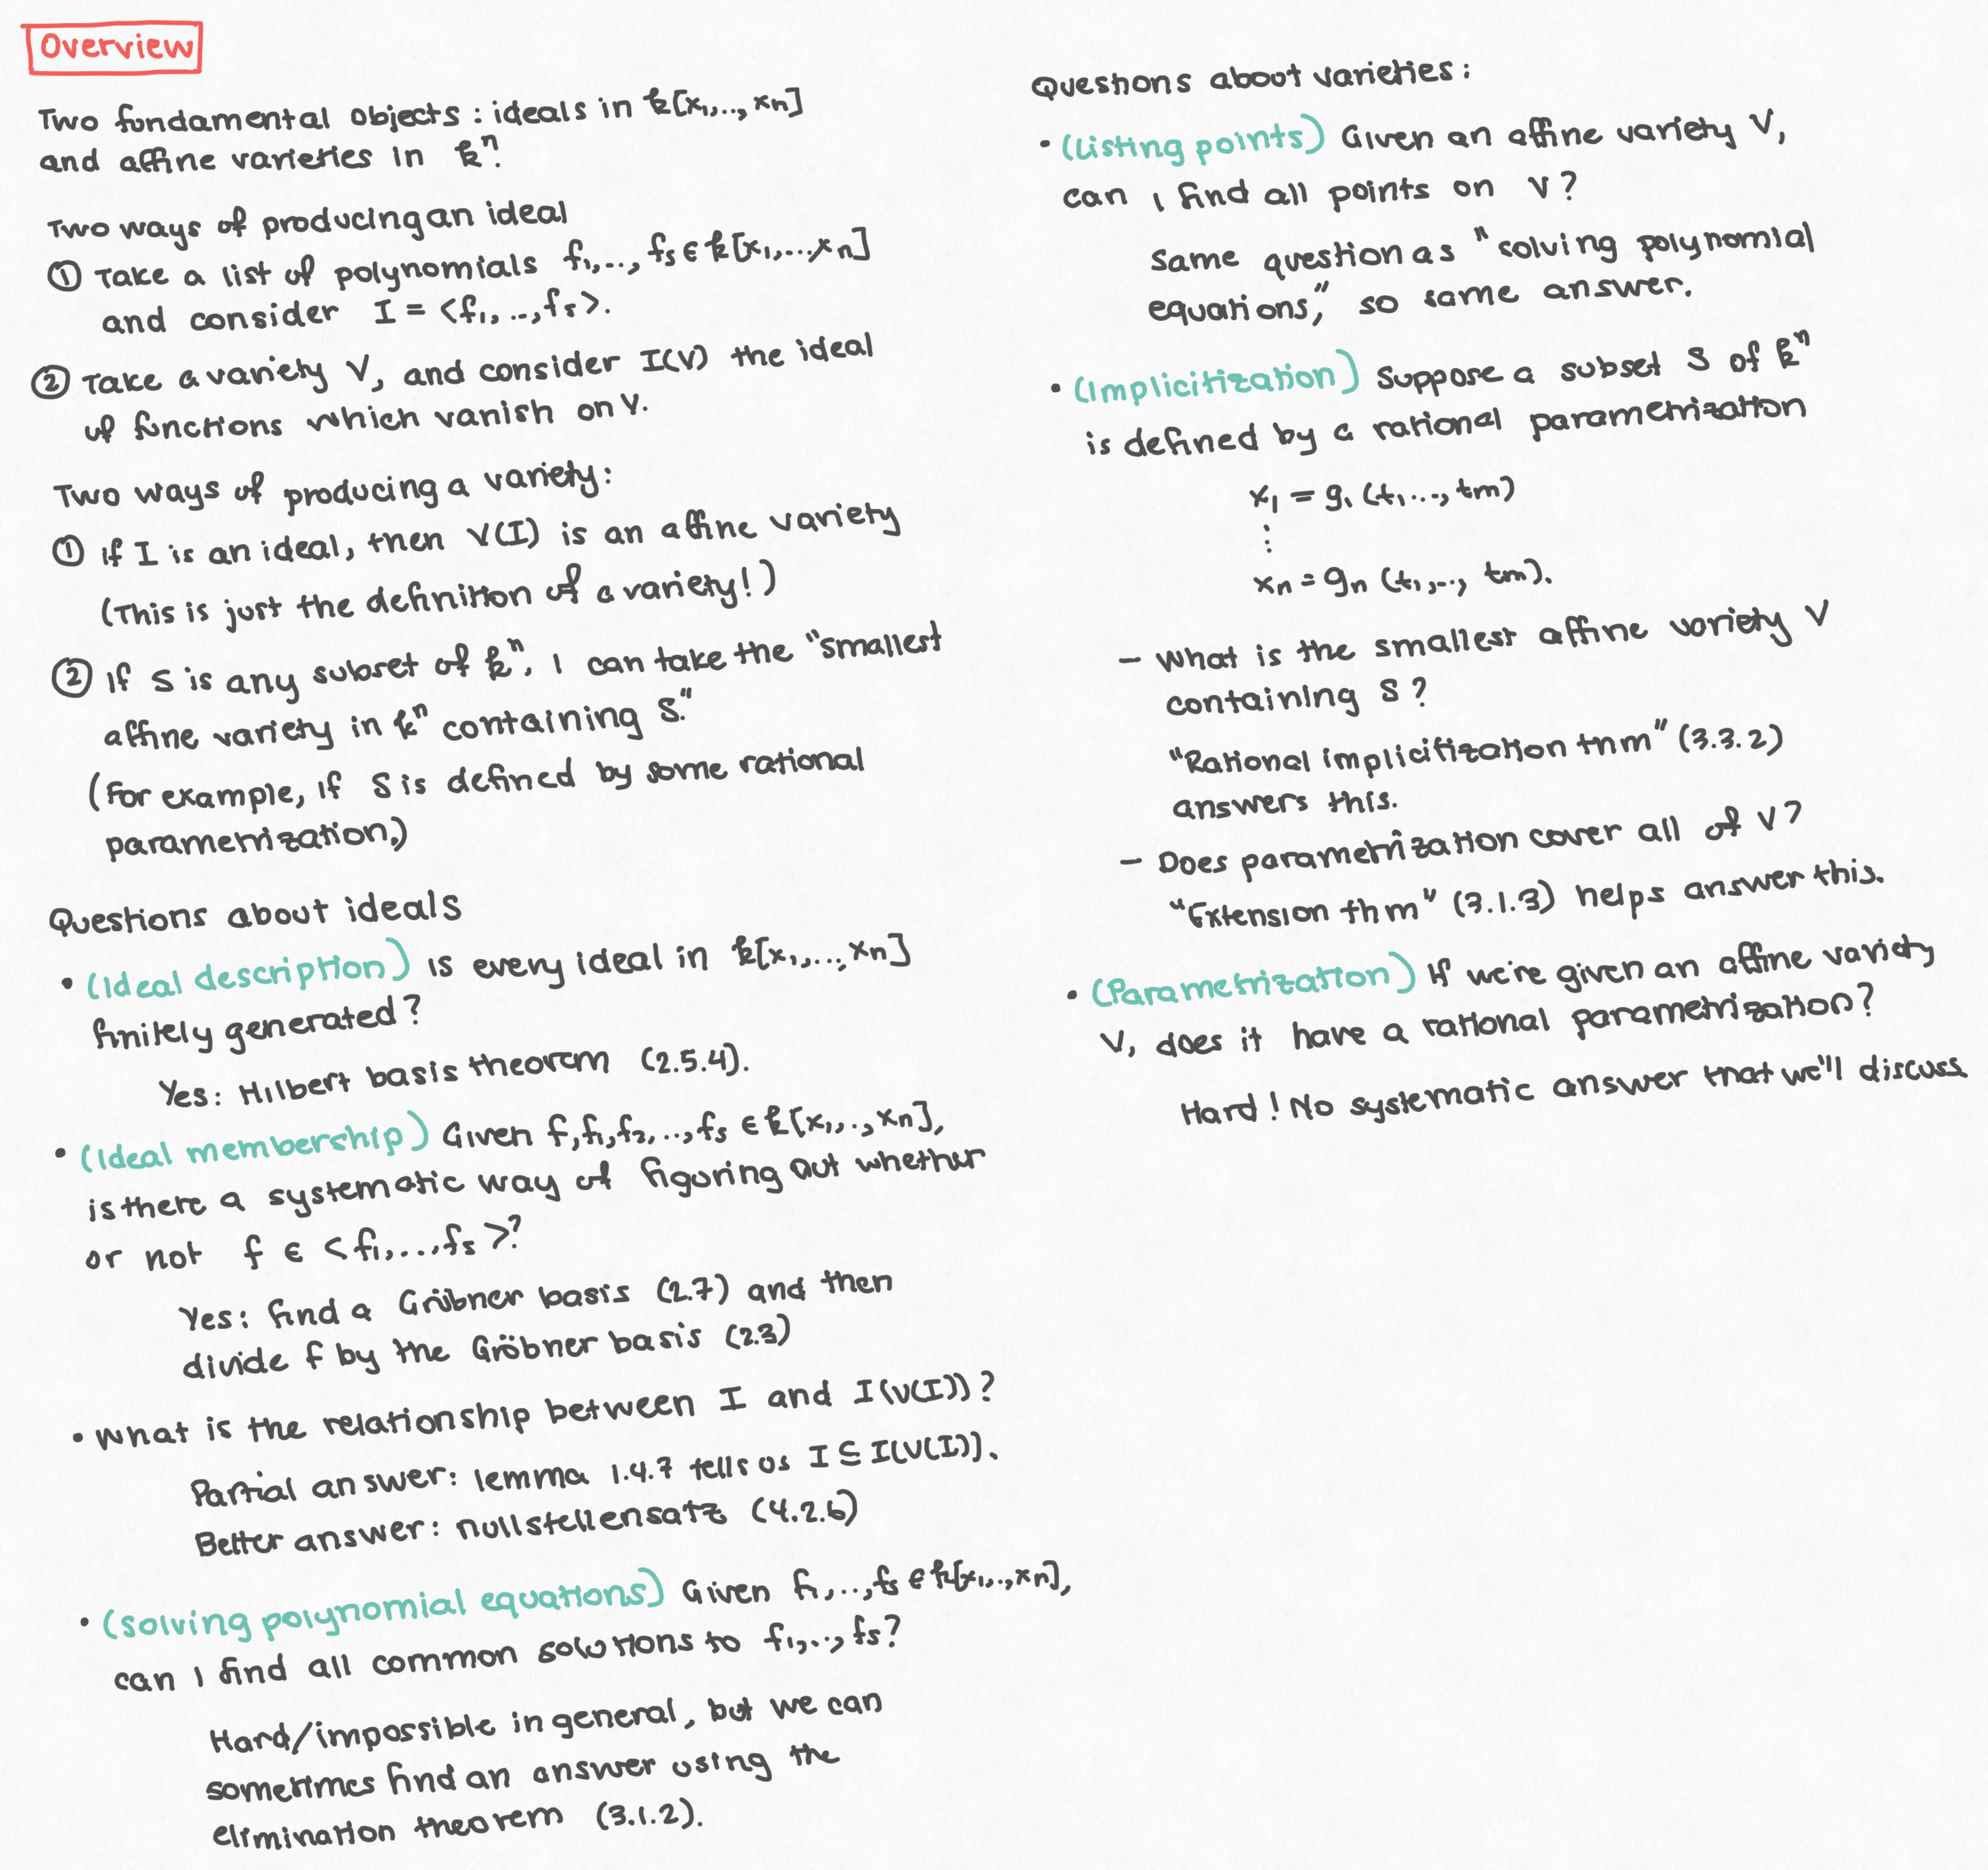 Overview
Two fundamental objects: ideals in k[x₁,..,xₙ]
and affine varieties in kⁿ.
Two ways of producing an ideal
① Take a list of polynomials f₁,..,fₛ ∈ k[x₁,...,xₙ]
and consider I = <f₁,..,fₛ>.
② Take a variety V, and consider I(V) the ideal
of functions which vanish on V.
Two ways of producing a variety:
① If I is an ideal, then V(I) is an affine variety
(This is just the definition of a variety!)
② If S is any subset of kⁿ, I can take the "smallest
affine variety in kⁿ containing S."
(For example, if S is defined by some rational
parametrization.)
Questions about ideals
• (Ideal description) Is every ideal in k[x₁,...,xₙ]
finitely generated?
Yes: Hilbert basis theorem (2.5.4).
• (Ideal membership) Given f,f₁,f₂,..,fₛ ∈ k[x₁,..,xₙ],
is there a systematic way of figuring out whether
or not f ∈ <f₁,...,fₛ>?
Yes: find a Gröbner basis (2.7) and then
divide f by the Gröbner basis (2.3)
• What is the relationship between I and I(V(I))?
Partial answer: lemma 1.4.7 tells us I ⊆ I(V(I)).
Better answer: nullstellensatz (4.2.6)
• (Solving polynomial equations) Given f₁,..,fₛ ∈ k[x₁,..,xₙ],
can I find all common solutions to f₁,..,fₛ?
Hard/impossible in general, but we can
sometimes find an answer using the
elimination theorem (3.1.2).
Questions about varieties:
• (Listing points) Given an affine variety V,
can I find all points on V?
Same question as "solving polynomial
equations," so same answer.
• (Implicitization) Suppose a subset S of kⁿ
is defined by a rational parametrization
x₁ = g₁ (t₁,..., tₘ)
⋮
xₙ = gₙ (t₁,..., tₘ).
– What is the smallest affine variety V
containing S?
"Rational implicitization thm" (3.3.2)
answers this.
– Does parametrization cover all of V?
"Extension thm" (3.1.3) helps answer this.
• (Parametrization) If we're given an affine variety
V, does it have a rational parametrization?
Hard! No systematic answer that we'll discuss